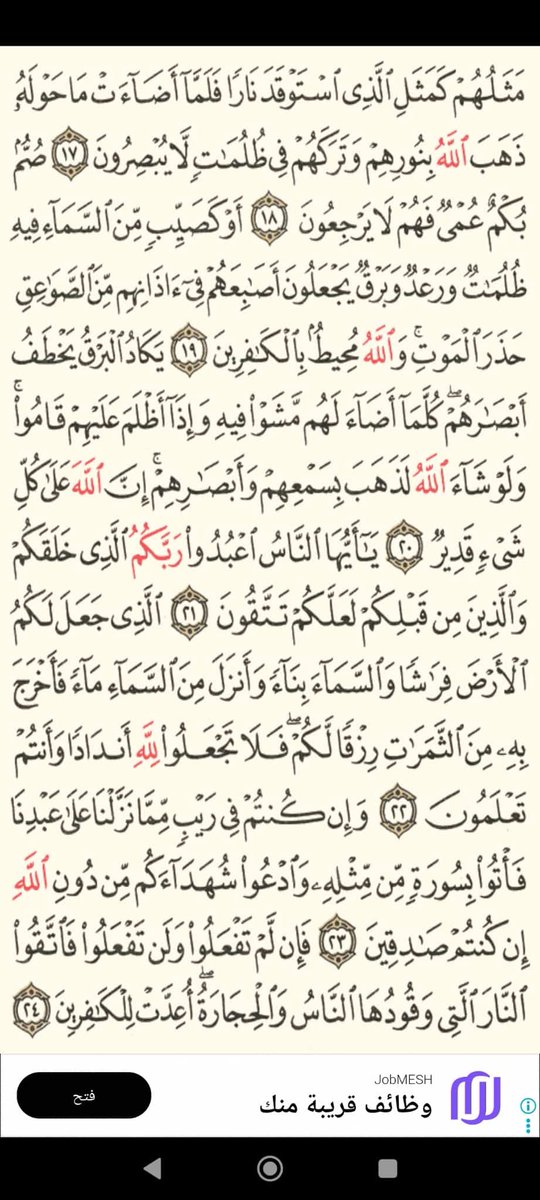 مَثَلُهُمْ كَمَثَلِ ٱلَّذِى ٱسْتَوْقَدَ نَارًا فَلَمَّآ أَضَآءَتْ مَا حَوْلَهُۥ
ذَهَبَ ٱللَّهُ بِنُورِهِمْ وَتَرَكَهُمْ فِى ظُلُمَٰتٍ لَّا يُبْصِرُونَ ١٧ صُمٌّۢ
بُكْمٌ عُمْىٌ فَهُمْ لَا يَرْجِعُونَ ١٨ أَوْ كَصَيِّبٍ مِّنَ ٱلسَّمَآءِ فِيهِ
ظُلُمَٰتٌ وَرَعْدٌ وَبَرْقٌ يَجْعَلُونَ أَصَٰبِعَهُمْ فِىٓ ءَاذَانِهِم مِّنَ ٱلصَّوَٰعِقِ
حَذَرَ ٱلْمَوْتِ ۚ وَٱللَّهُ مُحِيطٌۢ بِٱلْكَٰفِرِينَ ١٩ يَكَادُ ٱلْبَرْقُ يَخْطَفُ
أَبْصَٰرَهُمْ ۖ كُلَّمَآ أَضَآءَ لَهُم مَّشَوْا۟ فِيهِ وَإِذَآ أَظْلَمَ عَلَيْهِمْ قَامُوا۟ ۚ
وَلَوْ شَآءَ ٱللَّهُ لَذَهَبَ بِسَمْعِهِمْ وَأَبْصَٰرِهِمْ ۚ إِنَّ ٱللَّهَ عَلَىٰ كُلِّ
شَىْءٍ قَدِيرٌ ٢٠ يَٰٓأَيُّهَا ٱلنَّاسُ ٱعْبُدُوا۟ رَبَّكُمُ ٱلَّذِى خَلَقَكُمْ
وَٱلَّذِينَ مِن قَبْلِكُمْ لَعَلَّكُمْ تَتَّقُونَ ٢١ ٱلَّذِى جَعَلَ لَكُمُ
ٱلْأَرْضَ فِرَٰشًا وَٱلسَّمَآءَ بِنَآءً وَأَنزَلَ مِنَ ٱلسَّمَآءِ مَآءً فَأَخْرَجَ
بِهِۦ مِنَ ٱلثَّمَرَٰتِ رِزْقًا لَّكُمْ ۖ فَلَا تَجْعَلُوا۟ لِلَّهِ أَندَادًا وَأَنتُمْ
تَعْلَمُونَ ٢٢ وَإِن كُنتُمْ فِى رَيْبٍ مِّمَّا نَزَّلْنَا عَلَىٰ عَبْدِنَا
فَأْتُوا۟ بِسُورَةٍ مِّن مِّثْلِهِۦ وَٱدْعُوا۟ شُهَدَآءَكُم مِّن دُونِ ٱللَّهِ
إِن كُنتُمْ صَٰدِقِينَ ٢٣ فَإِن لَّمْ تَفْعَلُوا۟ وَلَن تَفْعَلُوا۟ فَٱتَّقُوا۟
ٱلنَّارَ ٱلَّتِى وَقُودُهَا ٱلنَّاسُ وَٱلْحِجَارَةُ ۖ أُعِدَّتْ لِلْكَٰفِرِينَ ٢٤
JobMESH
وظائف قريبة منك
فتح